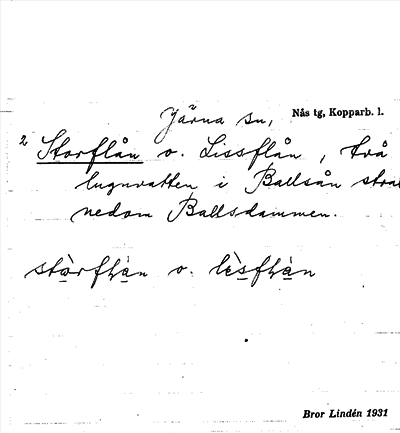 Järna sn, Nås tg, Kopparb. l.
2 Storflån o. Lissflån, två
lugnvatten i Ballsån stra
nedom Ballsdammen.
stàrfɫàn o. lèsfɫàn
Bror Lindén 1931